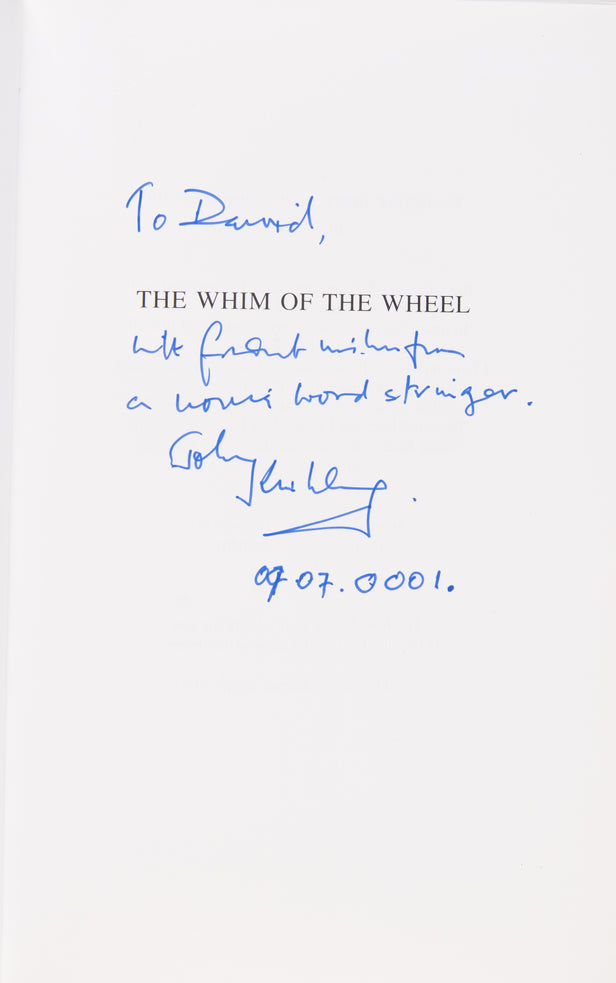 To David,
THE WHIM OF THE WHEEL
with great wishes from
a novice word stringer.
07.07.0001.